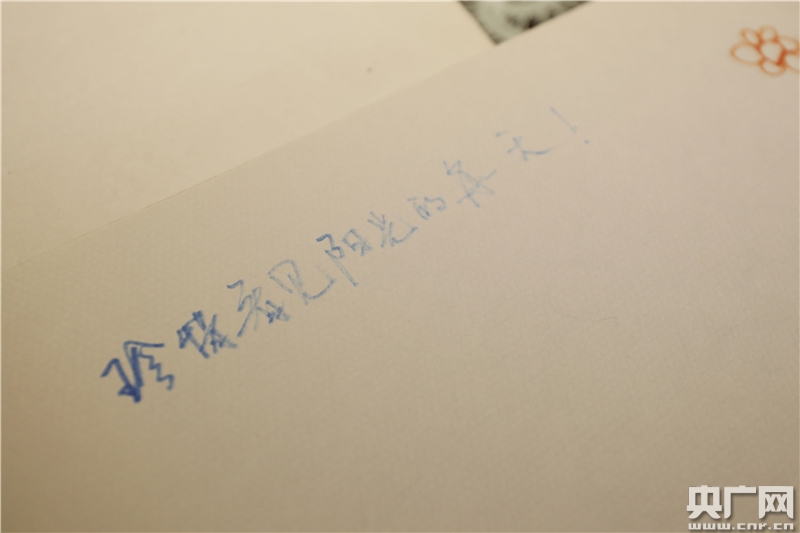 珍惜看见阳光的每天！
央广网
www.cnr.cn